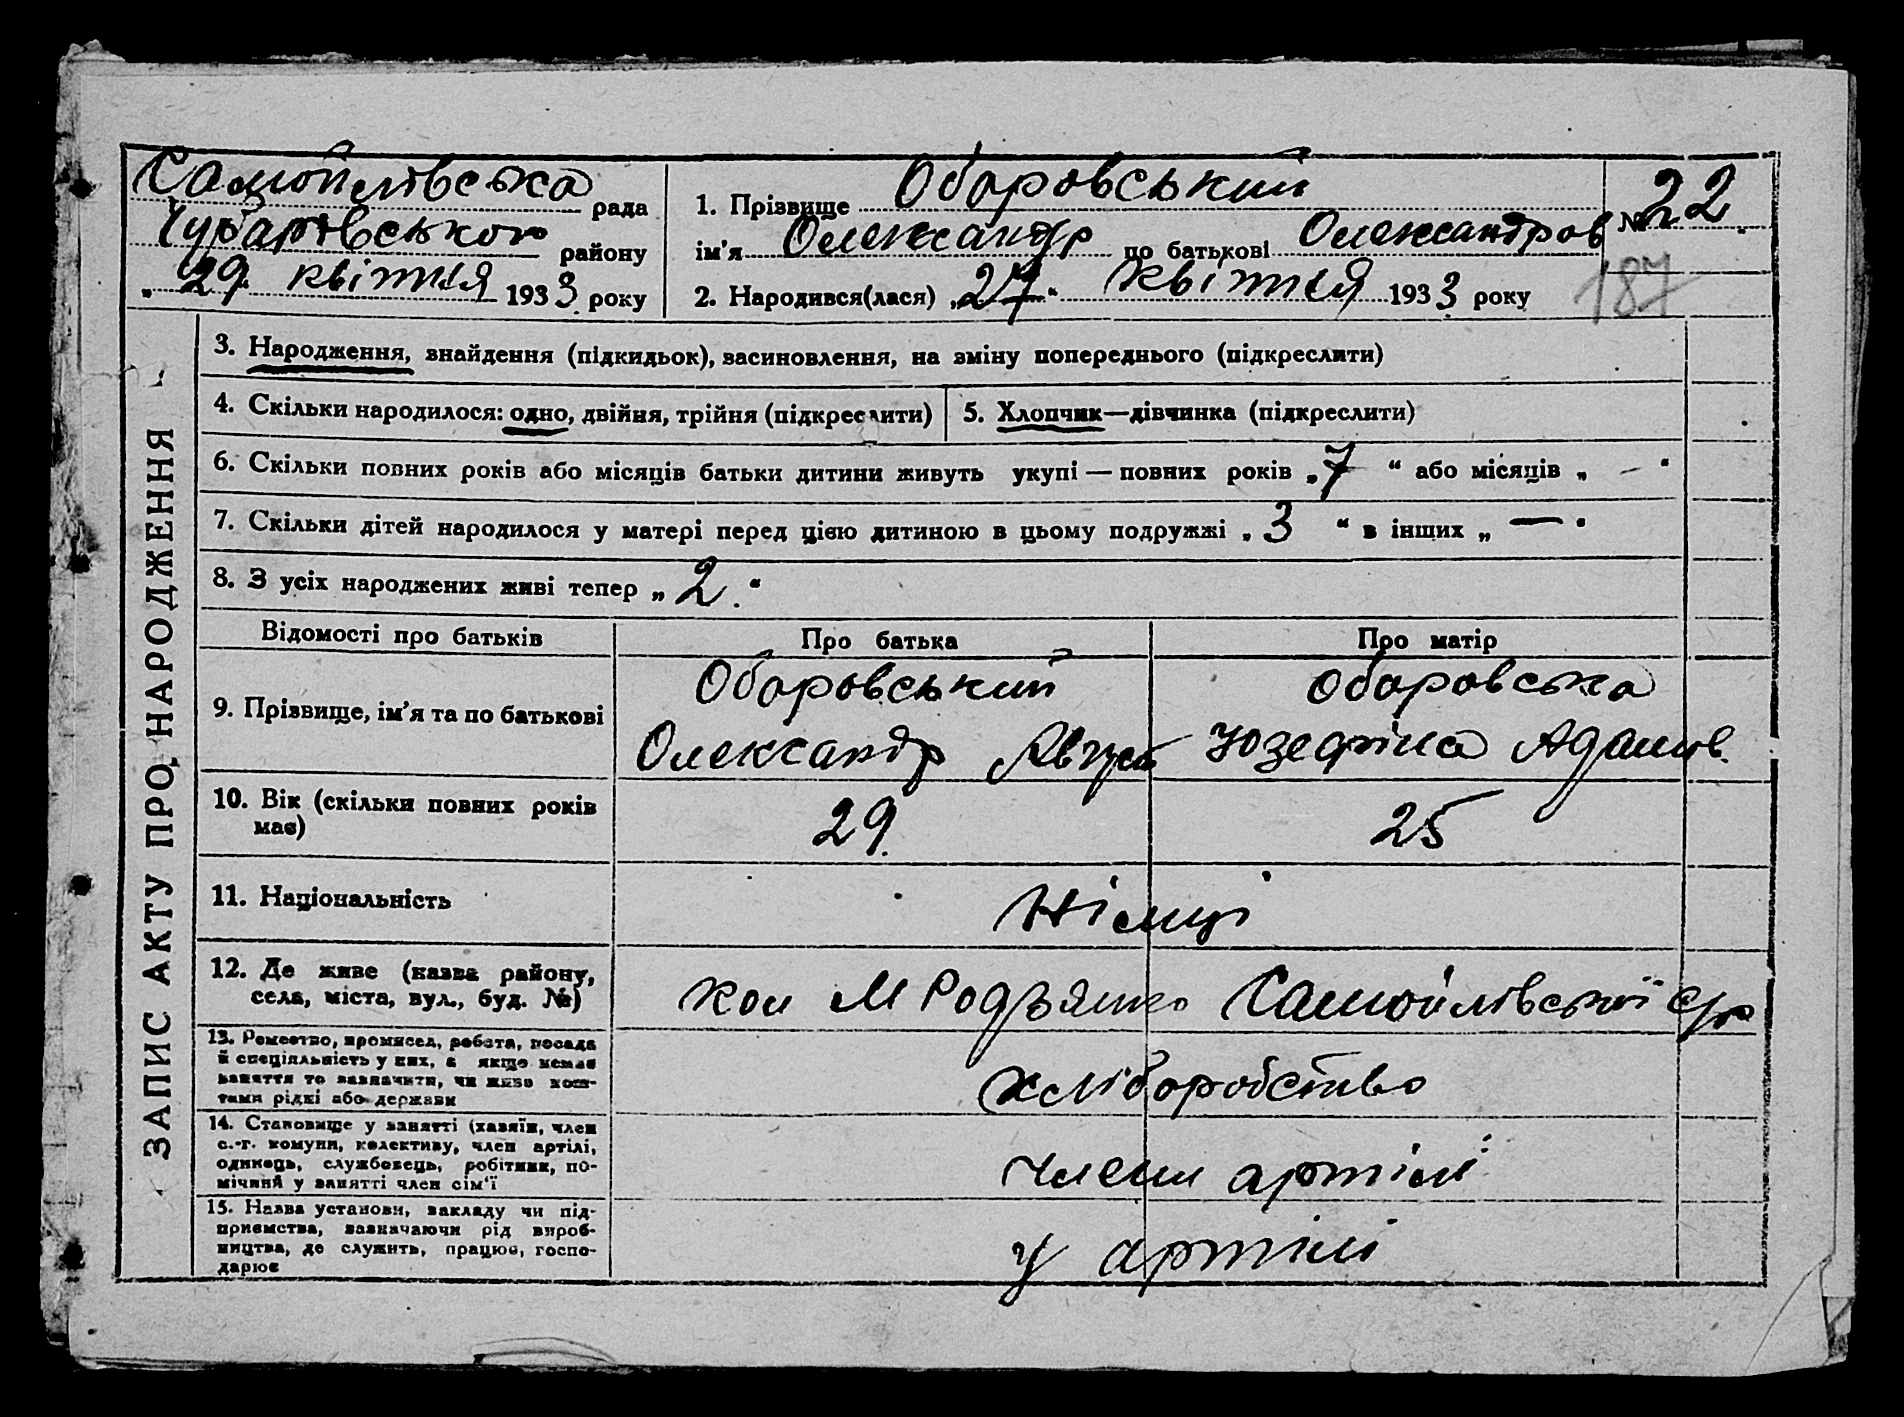 Самойлівська рада
Чубарівського району
„29 квітня 1933 року
1. Прізвище Оборовський
ім'я Олександр по батькові Олександров
2. Народився(лася) „27“ квітня 1933 року
№ 22
187
ЗАПИС АКТУ ПРО НАРОДЖЕННЯ
3. Народження, знайдення (підкидьок), засиновлення, на зміну попереднього (підкреслити)
4. Скільки народилося: одно, двійня, трійня (підкреслити)
5. Хлопчик—дівчинка (підкреслити)
6. Скільки повних років або місяців батьки дитини живуть укупі — повних років „7“ або місяців „ – “
7. Скільки дітей народилося у матері перед цією дитиною в цьому подружжі „3“ в інших „ — “
8. З усіх народжених живі тепер „2.“
Відомості про батьків Про батька Про матір
9. Прізвище, ім'я та по батькові
Оборовський
Олександр Август
Оборовська
Юзефіна Адамов.
10. Вік (скільки повних років
має)
29.
25
11. Національність
Німці
12. Де живе (назва району,
села, міста, вул., буд. №)
кол М Родзянко Самойлівської с/р
13. Ремество, промисел, робота, посада
й спеціяльність у них, а якщо немає
заняття то зазначити, чи живе кош-
тами рідні або держави
хліборобство
14. Становище у занятті (хазяїн, член
с.-г. комуни, колективу, член артілі,
одинець, службовець, робітник, по-
мічний у занятті член сім'ї
члени артілі
15. Назва установи, закладу чи під-
приємства, зазначаючи рід вироб-
ництва, де служить, працює, госпо-
дарює
у артілі